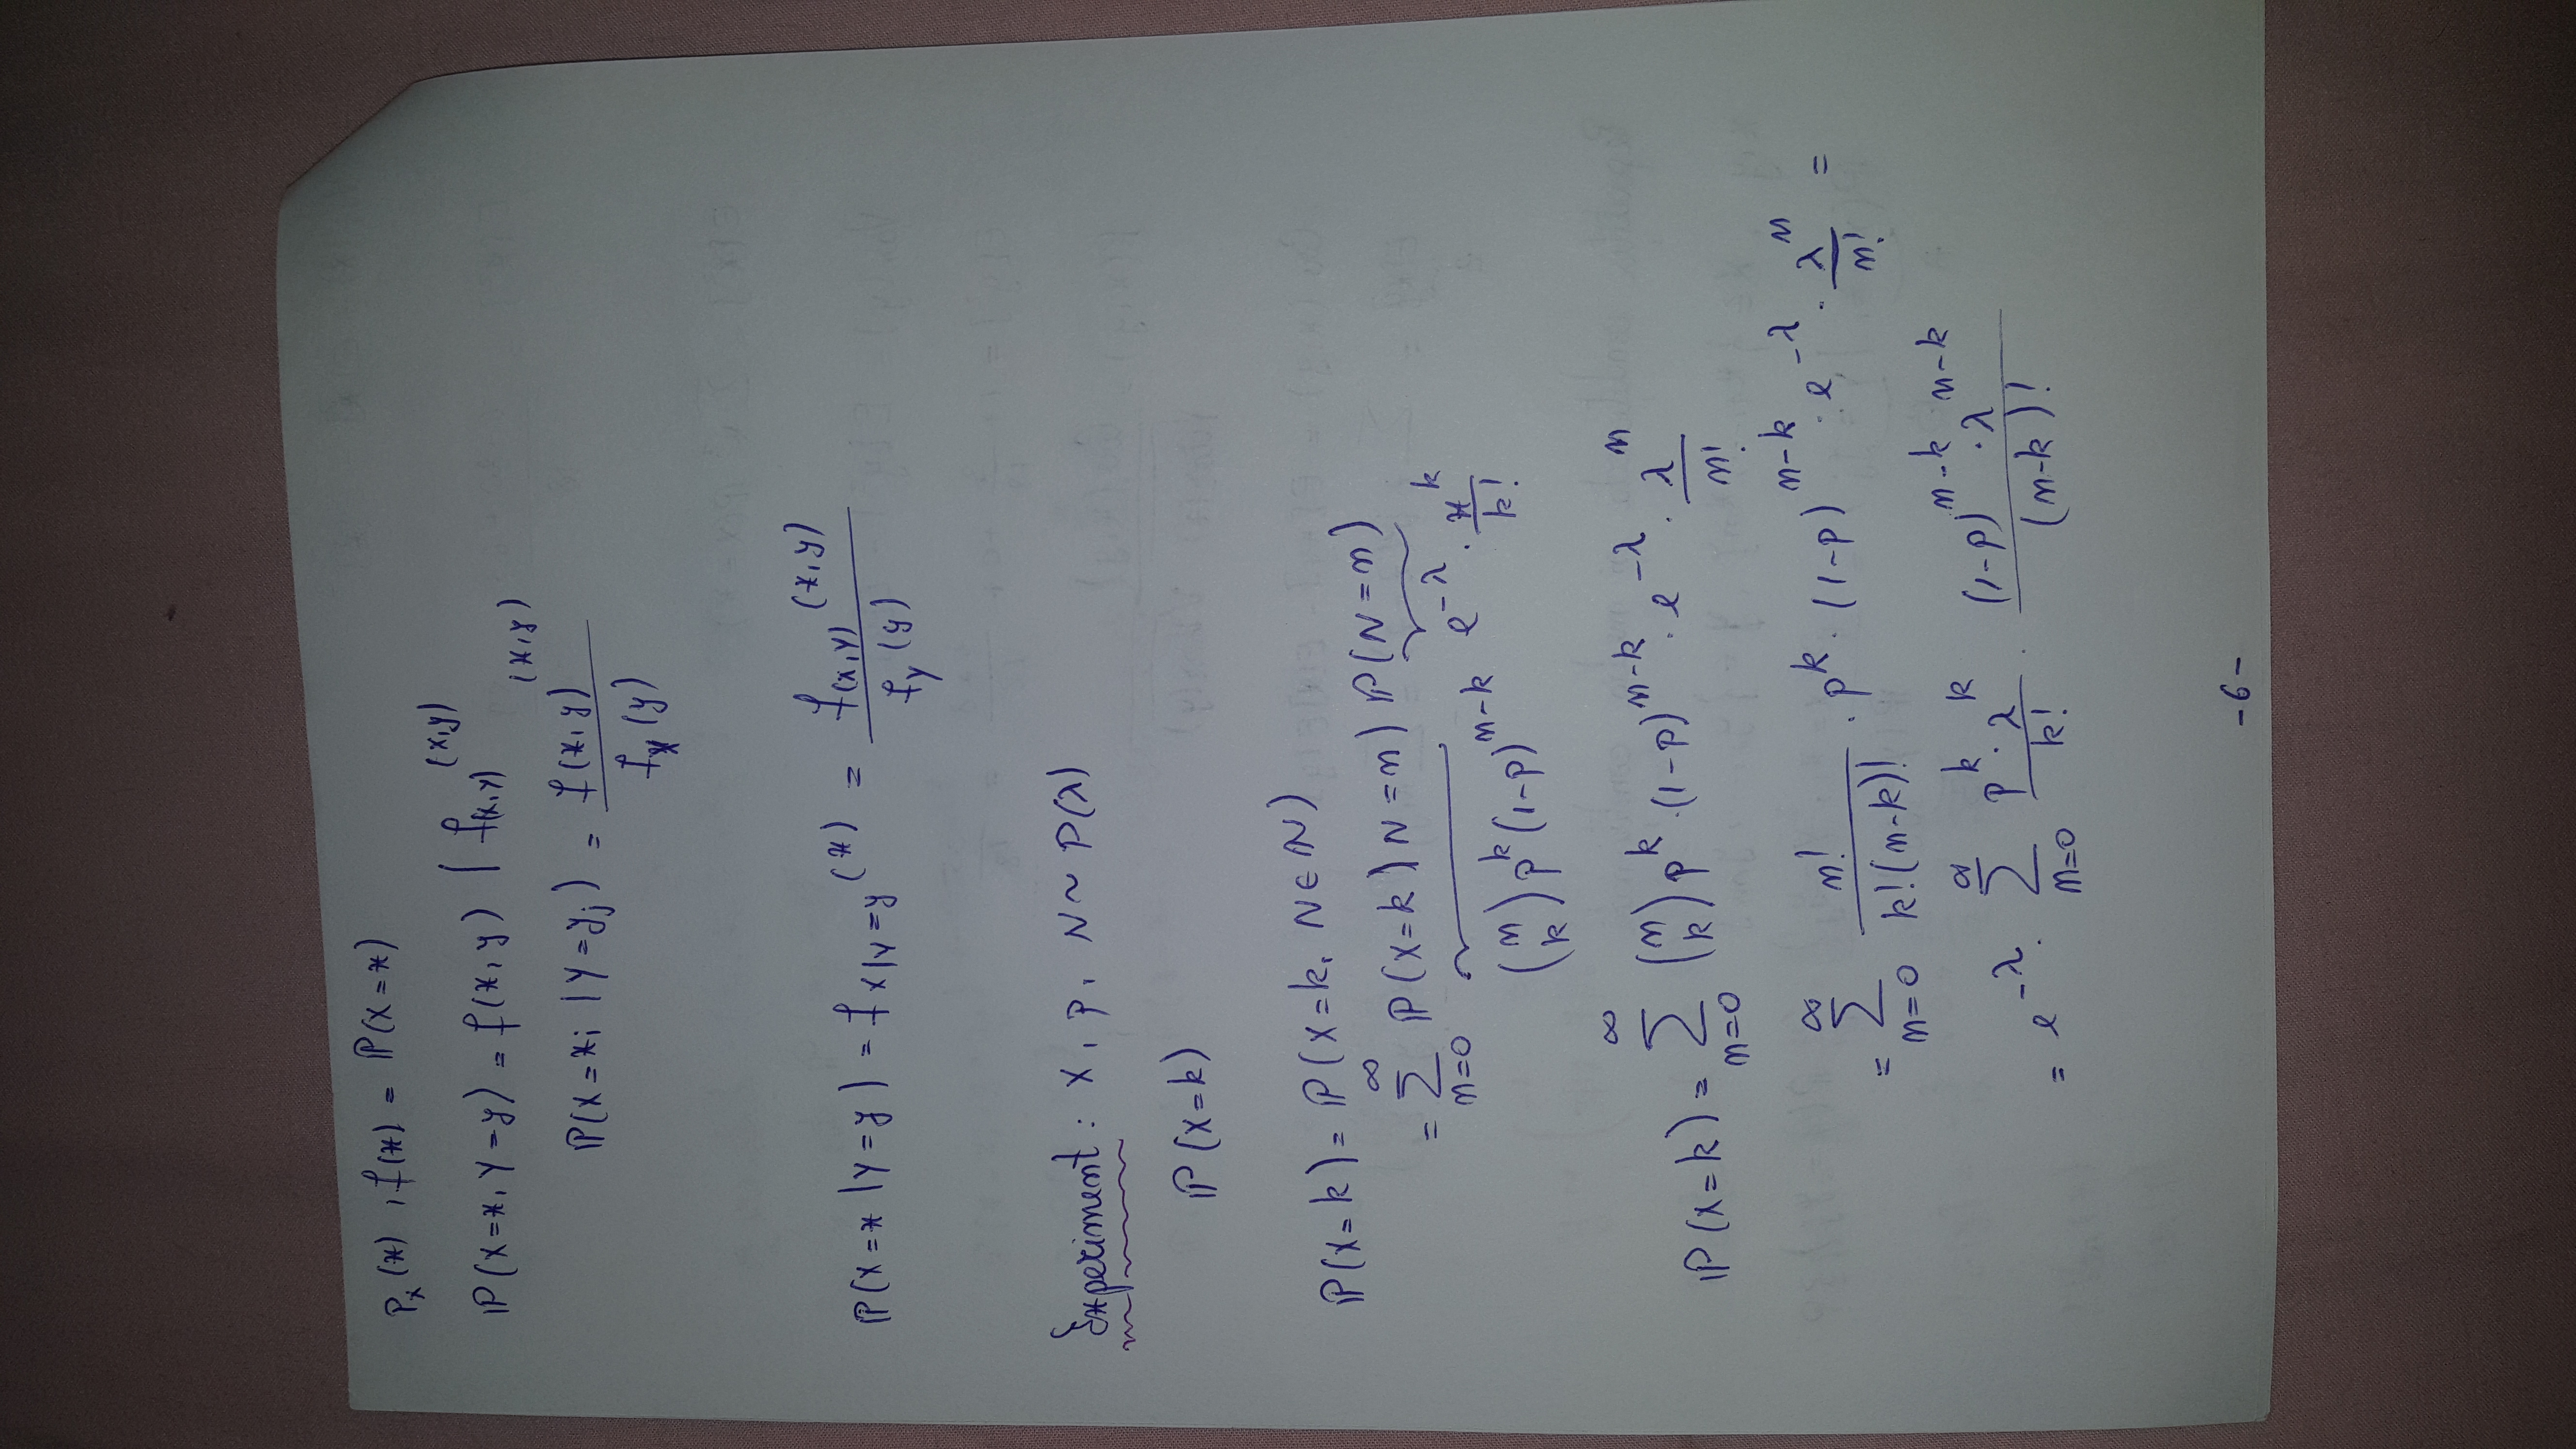 P_x(x), f(x) = ℙ(X=x)
ℙ(X=x, Y=y) = f(x,y) | f_(X,Y) (x,y)
ℙ(X=x_i | Y=y_j) = f(x,y) (x,y) / f_X(y)
ℙ(X=x | Y=y) = f_X|Y=y (x) = f_(X,Y) (x,y) / f_Y(y)
Experiment: X, p, N ~ P(λ)
ℙ(X=k)
ℙ(X=k) = ℙ(X=k, N∈ℕ)
= ∑_{n=0}^{∞} ℙ(X=k | N=n) ℙ(N=n)
(n k) p^k (1-p)^{n-k} e^{-λ} · x^k / k!
ℙ(X=k) = ∑_{n=0}^{∞} (n k) p^k · (1-p)^{n-k} · e^{-λ} · λ^n / n!
= ∑_{n=0}^{∞} n! / k!(n-k)! · p^k · (1-p)^{n-k} · e^{-λ} · λ^n / n! =
= e^{-λ} · ∑_{n=0}^{∞} p^k · λ^k / k! · (1-p)^{n-k} · λ^{n-k} / (n-k)!
-6-